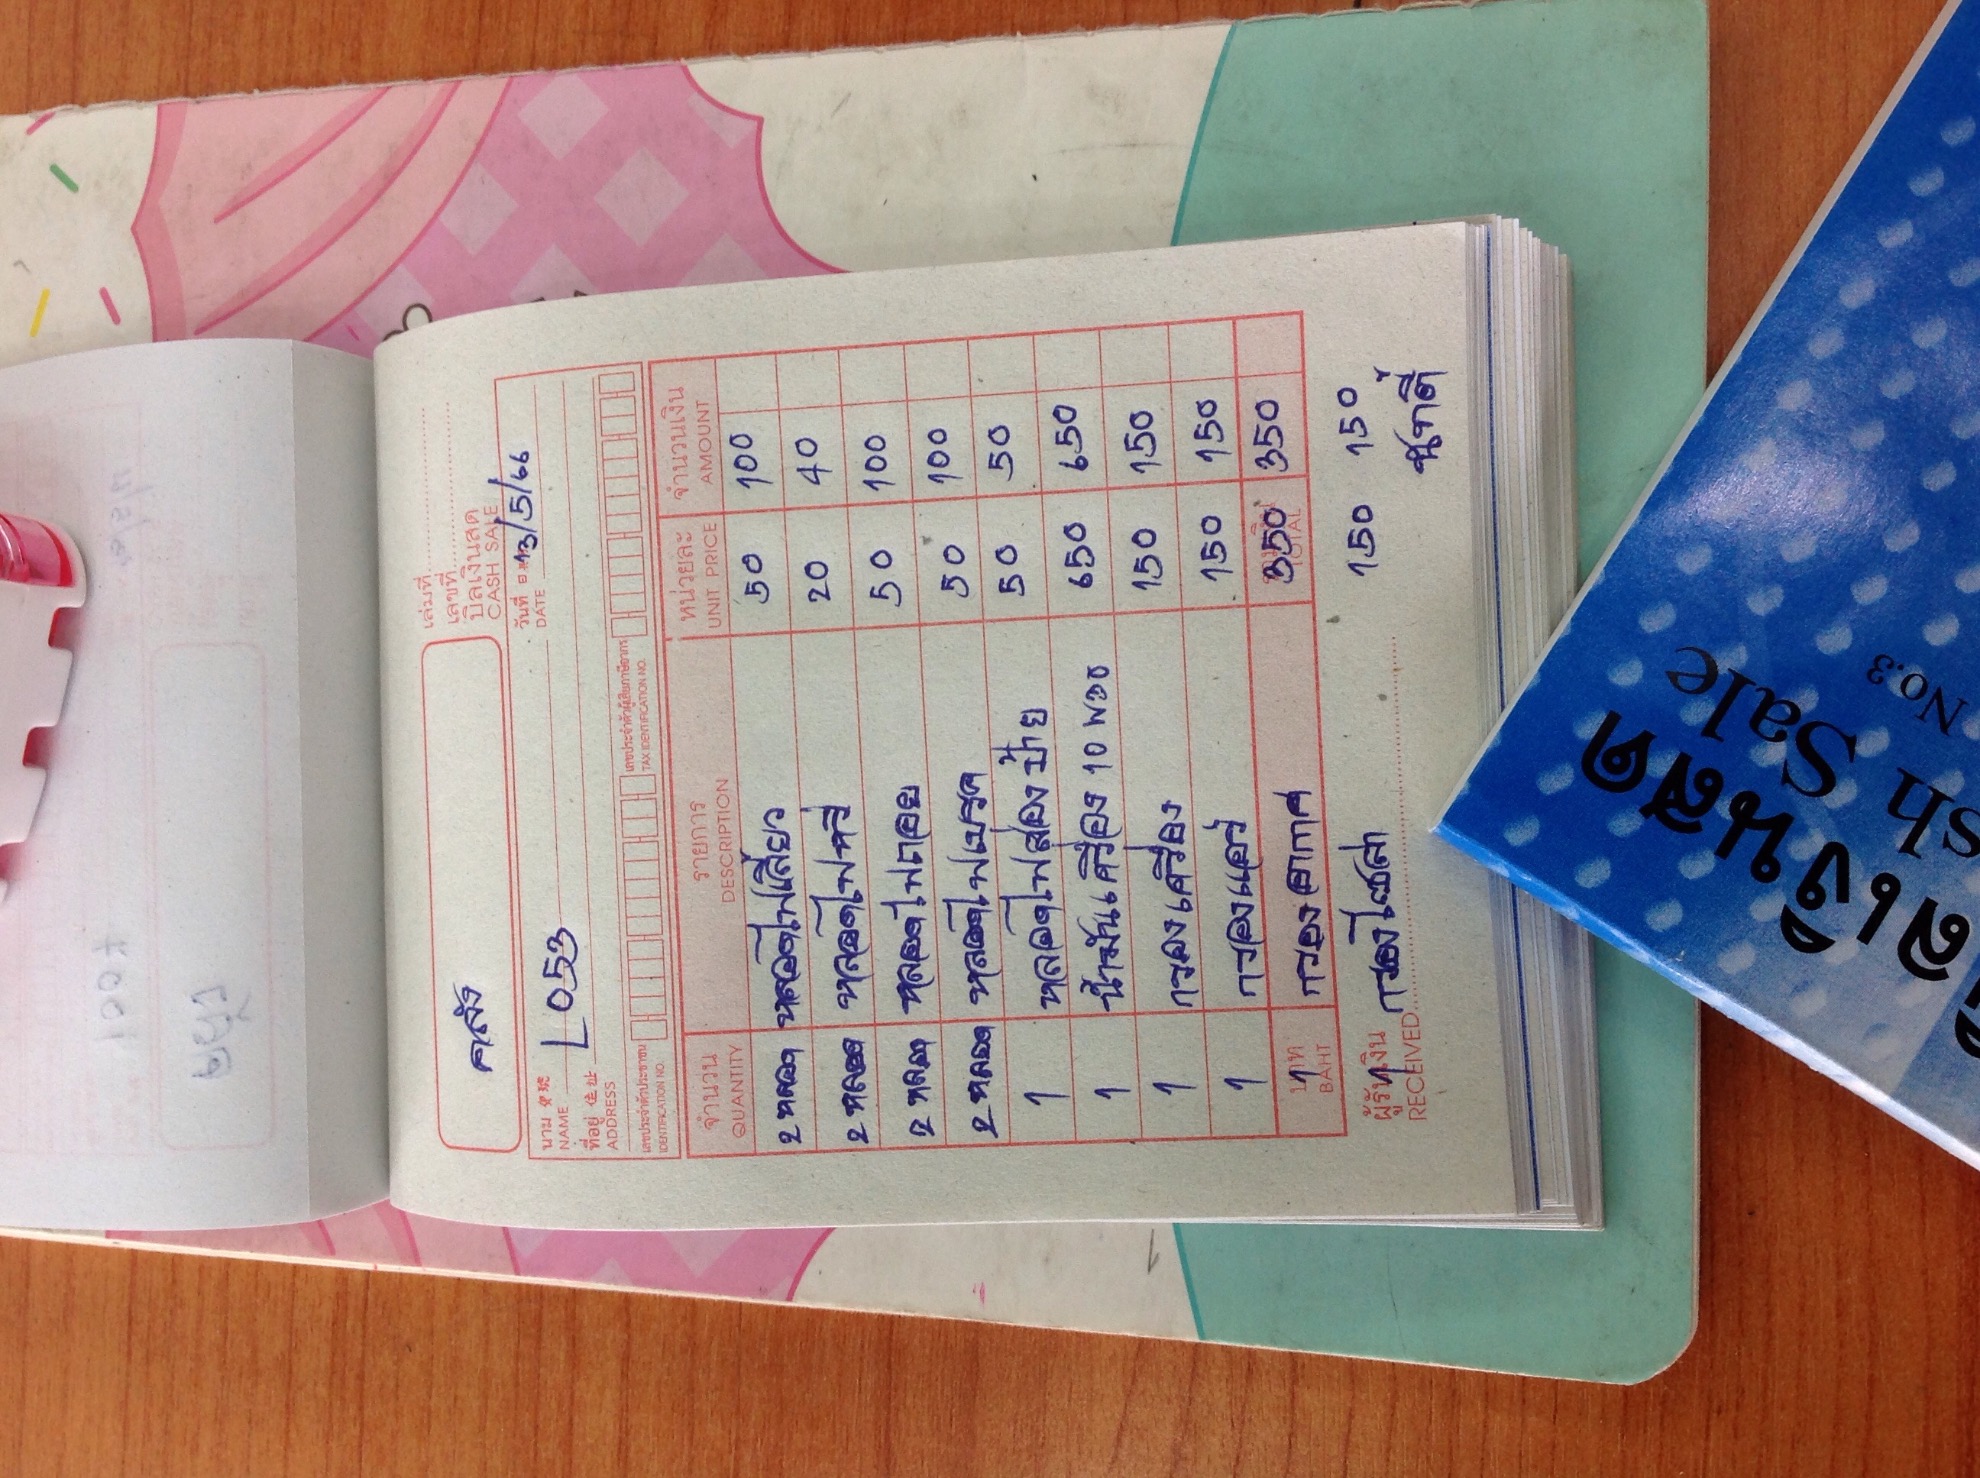 คลัง
เล่มที่
เลขที่
บิลเงินสด
CASH SALE
วันที่ 13/5/66
DATE
นาม
NAME L 053
ที่อยู่ 住址
ADDRESS
เลขประจำตัวประชาชน เลขประจำตัวผู้เสียภาษีอากร
IDENTIFICATION NO. TAX IDENTIFICATION NO.
จำนวน รายการ หน่วยละ จำนวนเงิน
QUANTITY DESCRIPTION UNIT PRICE AMOUNT
2 หลอด หลอดไฟเลี้ยว 50 100
2 หลอด หลอดไฟหรี่ 20 40
2 หลอด หลอดไฟถอย 50 100
2 หลอด หลอดไฟเบรค 50 100
1 หลอดไฟส่องป้าย 50 50
1 น้ำมันเครื่อง 10 พวง 650 650
1 กรองเครื่อง 150 150
1 กรองแอร์ 150 150
บาท รวมเงิน
BAHT TOTAL
1 กรองอากาศ 350 350
1 กรองโซล่า 150 150
ผู้รับเงิน
RECEIVED
บิลเงินสด
Cash Sale
No.3